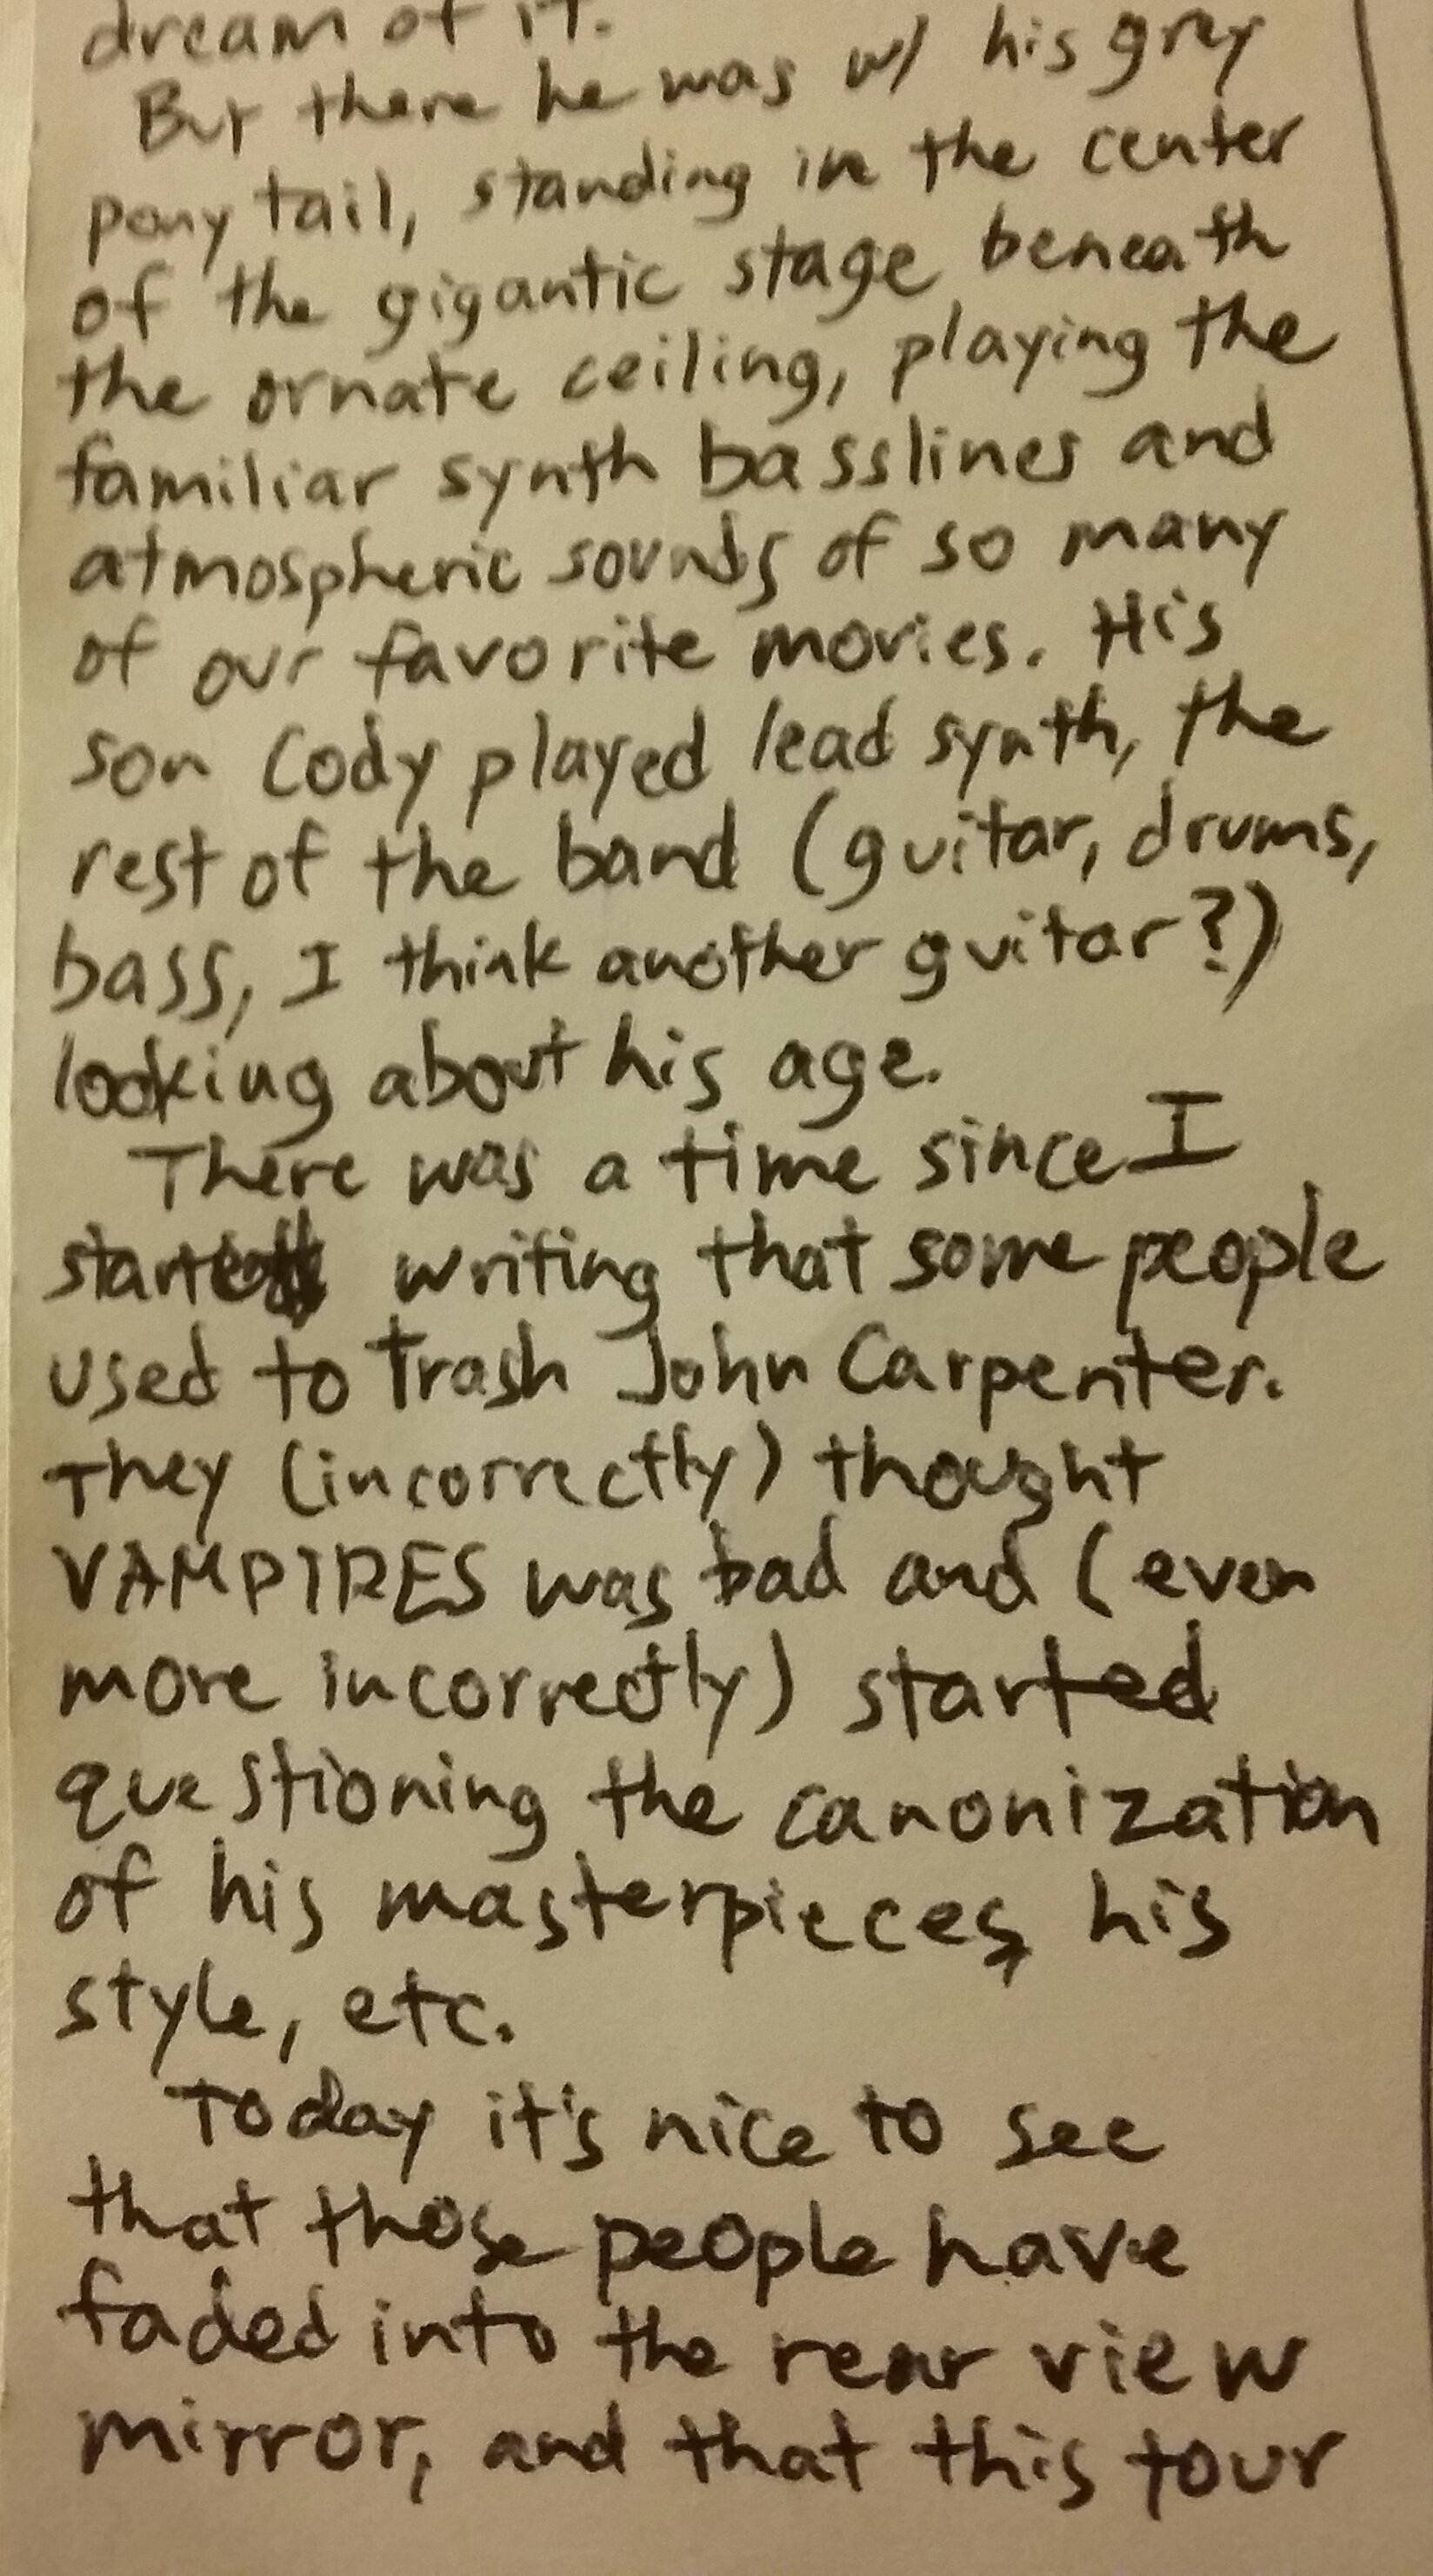 dream of it.
But there he was w/ his grey
pony tail, standing in the center
of the gigantic stage beneath
the ornate ceiling, playing the
familiar synth basslines and
atmospheric sounds of so many
of our favorite movies. His
son Cody played lead synth, the
rest of the band (guitar, drums,
bass, I think another guitar?)
looking about his age.
There was a time since I
started writing that some people
used to trash John Carpenter.
They (incorrectly) thought
VAMPIRES was bad and (even
more incorrectly) started
questioning the canonization
of his masterpieces, his
style, etc.
Today it's nice to see
that those people have
faded into the rear view
mirror, and that this tour